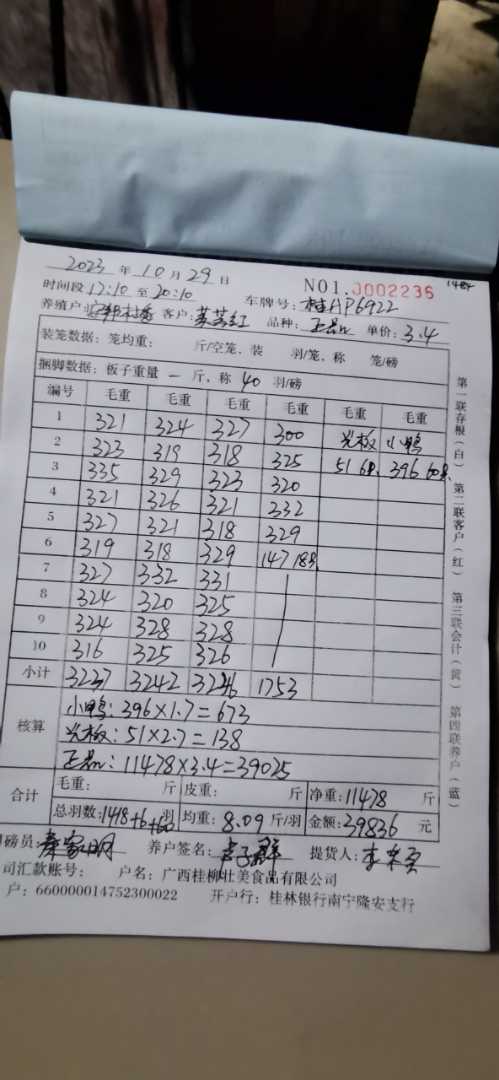 2023 年 10 月 29 日
NO1.0002236
时间段 17:10 至 20:10 车牌号: 桂AP6922
养殖户: 客户: 品种: 单价: 3.4
装笼数据: 笼均重: 斤/空笼, 装 羽/笼, 称 笼/磅
捆脚数据: 板子重量 一 斤, 称 40 羽/磅
编号 毛重 毛重 毛重 毛重 毛重 毛重
1 321 324 327 300 光板 小鸭
2 323 319 318 325 51 6只 396 60只
3 335 329 323 320
4 321 326 321 232
5 327 321 318 329
6 319 318 329 147 18只
7 327 332 331
8 324 320 325
9 324 328 328
10 316 325 326
小计 3237 3242 3246 1753
核算
小鸭: 396×1.7=673
光板: 51×2.7=138
正品: 11478×3.4=39025
合计 毛重: 斤 皮重: 斤 净重: 11478 斤
总羽数: 1418+6+60 羽 均重: 8.09 斤/羽 金额: 39836 元
磅员: 养户签名: 提货人:
司汇款账号: 户名: 广西桂柳壮美食品有限公司
户: 660000014752300022 开户行: 桂林银行南宁隆安支行
第一联存根(白) 第二联客户(红) 第三联会计(黄) 第四联养户(蓝)